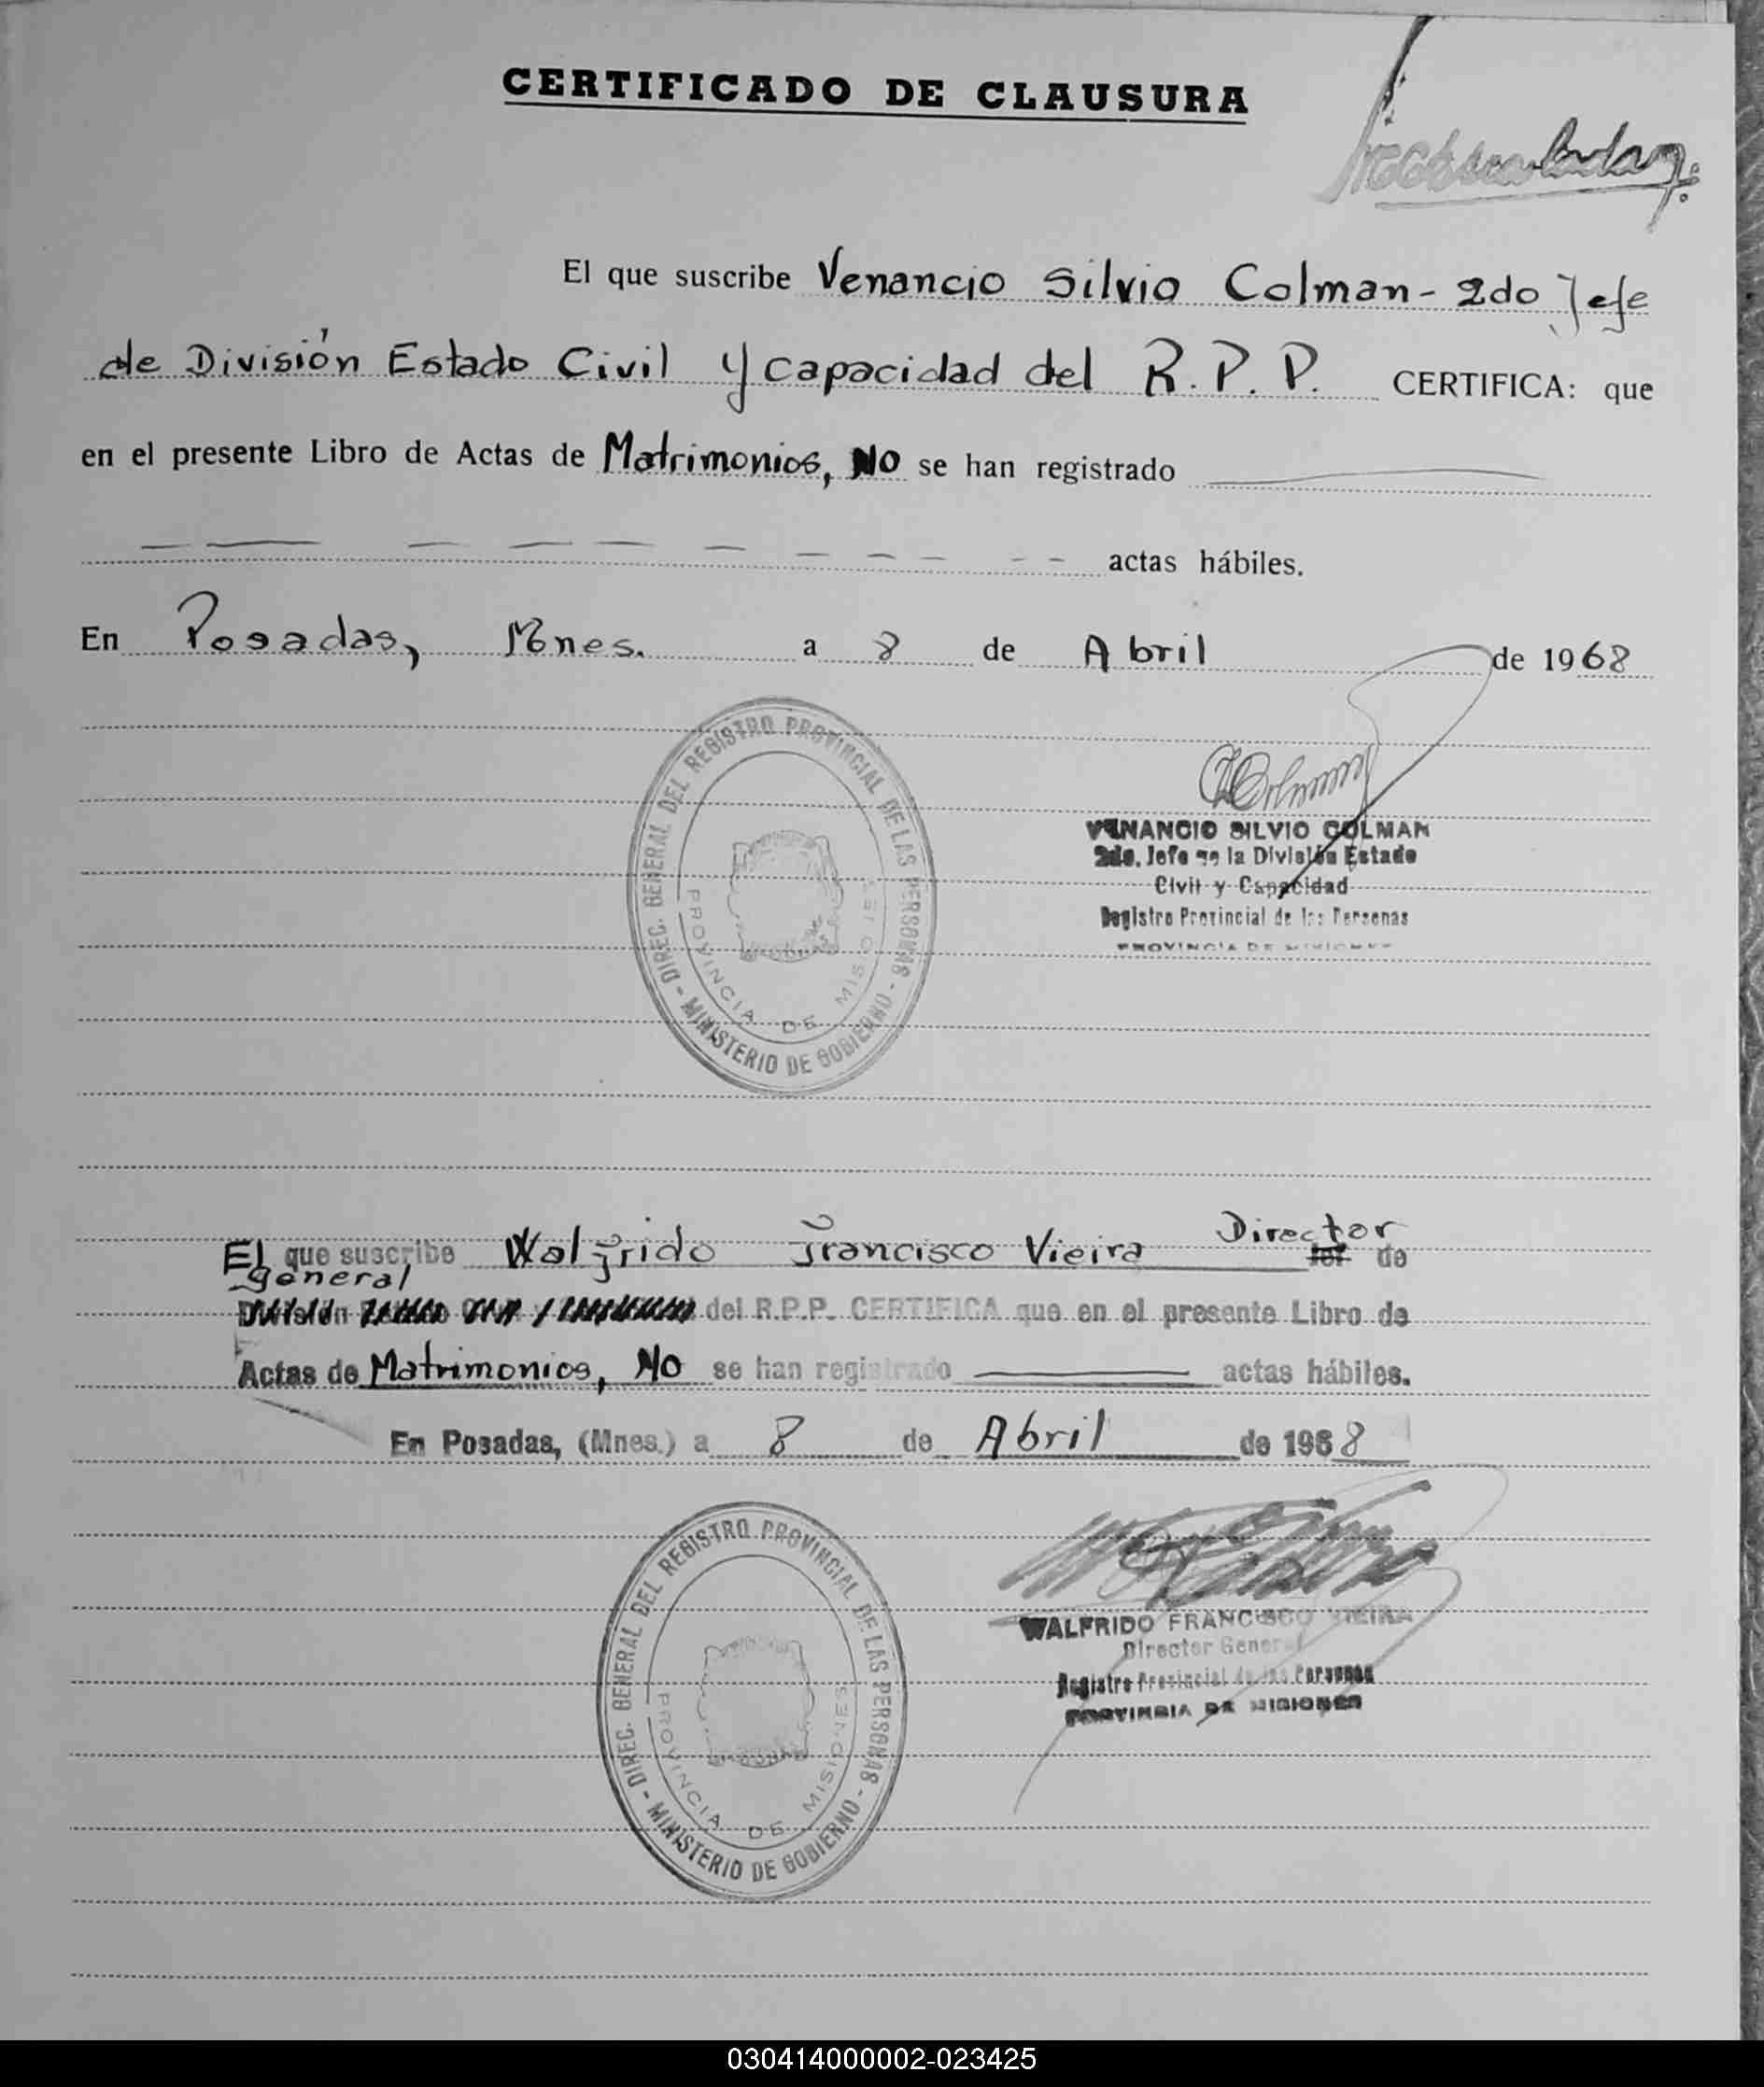 CERTIFICADO DE CLAUSURA
El que suscribe Venancio Silvio Colman - 2do Jefe
de División Estado Civil y capacidad del R.P.P. CERTIFICA: que
en el presente Libro de Actas de Matrimonios, No se han registrado
actas hábiles.
En Posadas, Mnes. a 8 de Abril de 1968
DIREC. GENERAL DEL REGISTRO PROVINCIAL DE LAS PERSONAS - MINISTERIO DE GOBIERNO -
PROVINCIA DE MISIONES
VENANCIO SILVIO COLMAN
2do. Jefe de la División Estado
Civil y Capacidad
Registro Provincial de las Personas
PROVINCIA DE MISIONES
El que suscribe Walfrido Francisco Vieira Director de
general
División del R.P.P. CERTIFICA que en el presente Libro de
Actas de Matrimonios, No se han registrado actas hábiles.
En Posadas, (Mnes.) a 8 de Abril de 1968
DIREC. GENERAL DEL REGISTRO PROVINCIAL DE LAS PERSONAS - MINISTERIO DE GOBIERNO -
PROVINCIA DE MISIONES
WALFRIDO FRANCISCO VIEIRA
Director General
Registro Provincial de las Personas
PROVINCIA DE MISIONES
030414000002-023425